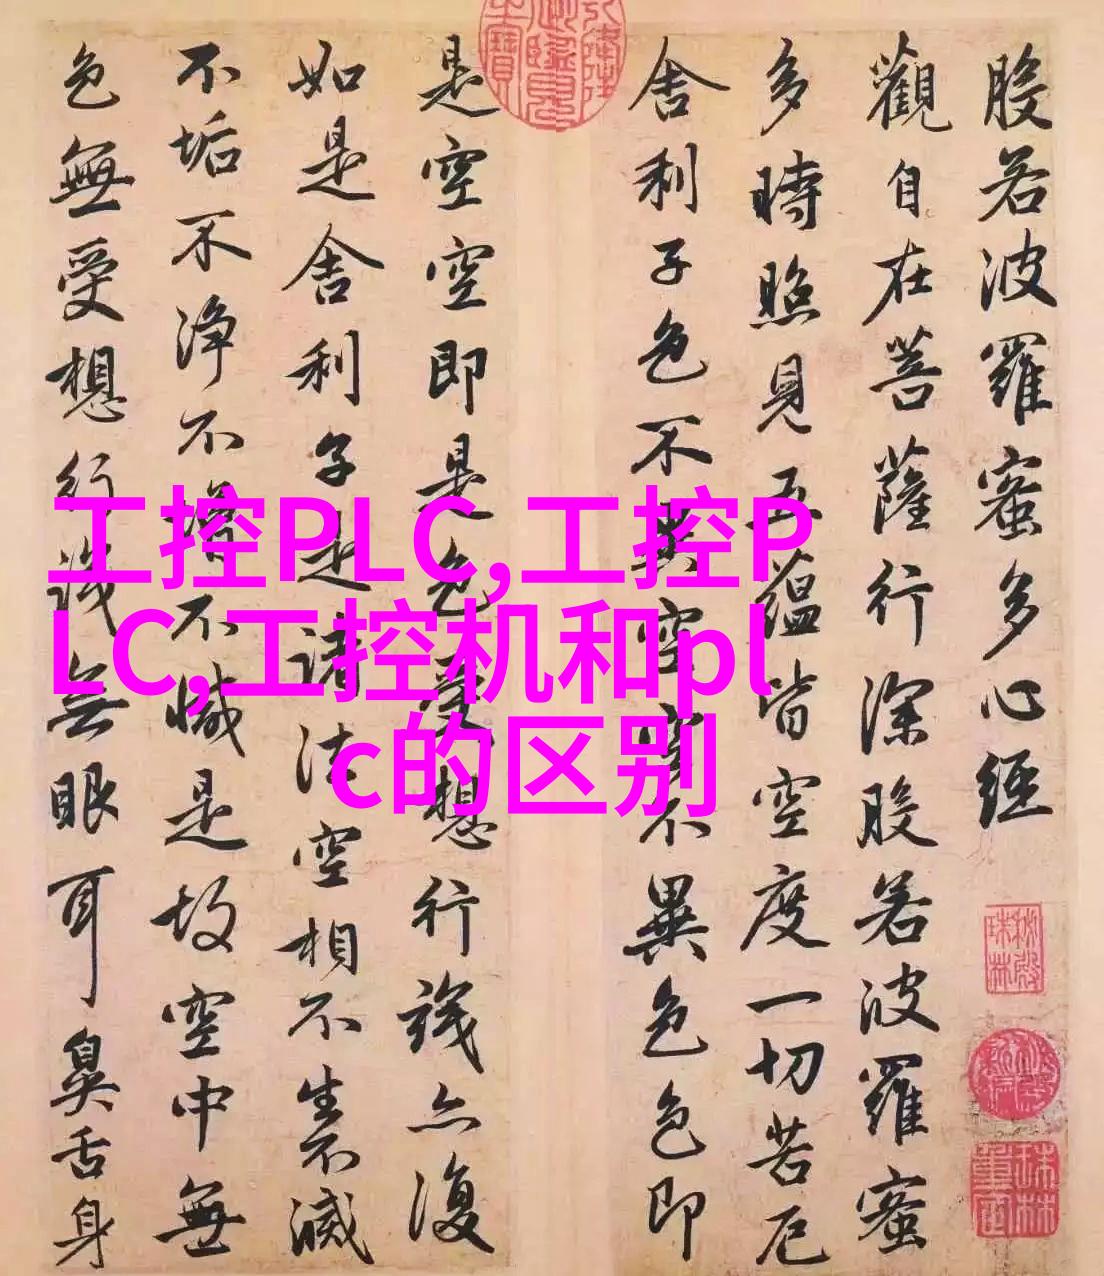 般若波羅蜜多心經
觀自在菩薩行深般若波羅蜜
多時照見五蘊皆空度一切苦厄
舍利子色不異空空不異色色即
是空空即是色受想行識亦復
如是舍利子是諸法空相不生不滅
不垢不淨不增不減是故空中無
色無受想行識無眼耳鼻舌身
工控PLC,工控P
LC,工控机和pl
c的区别